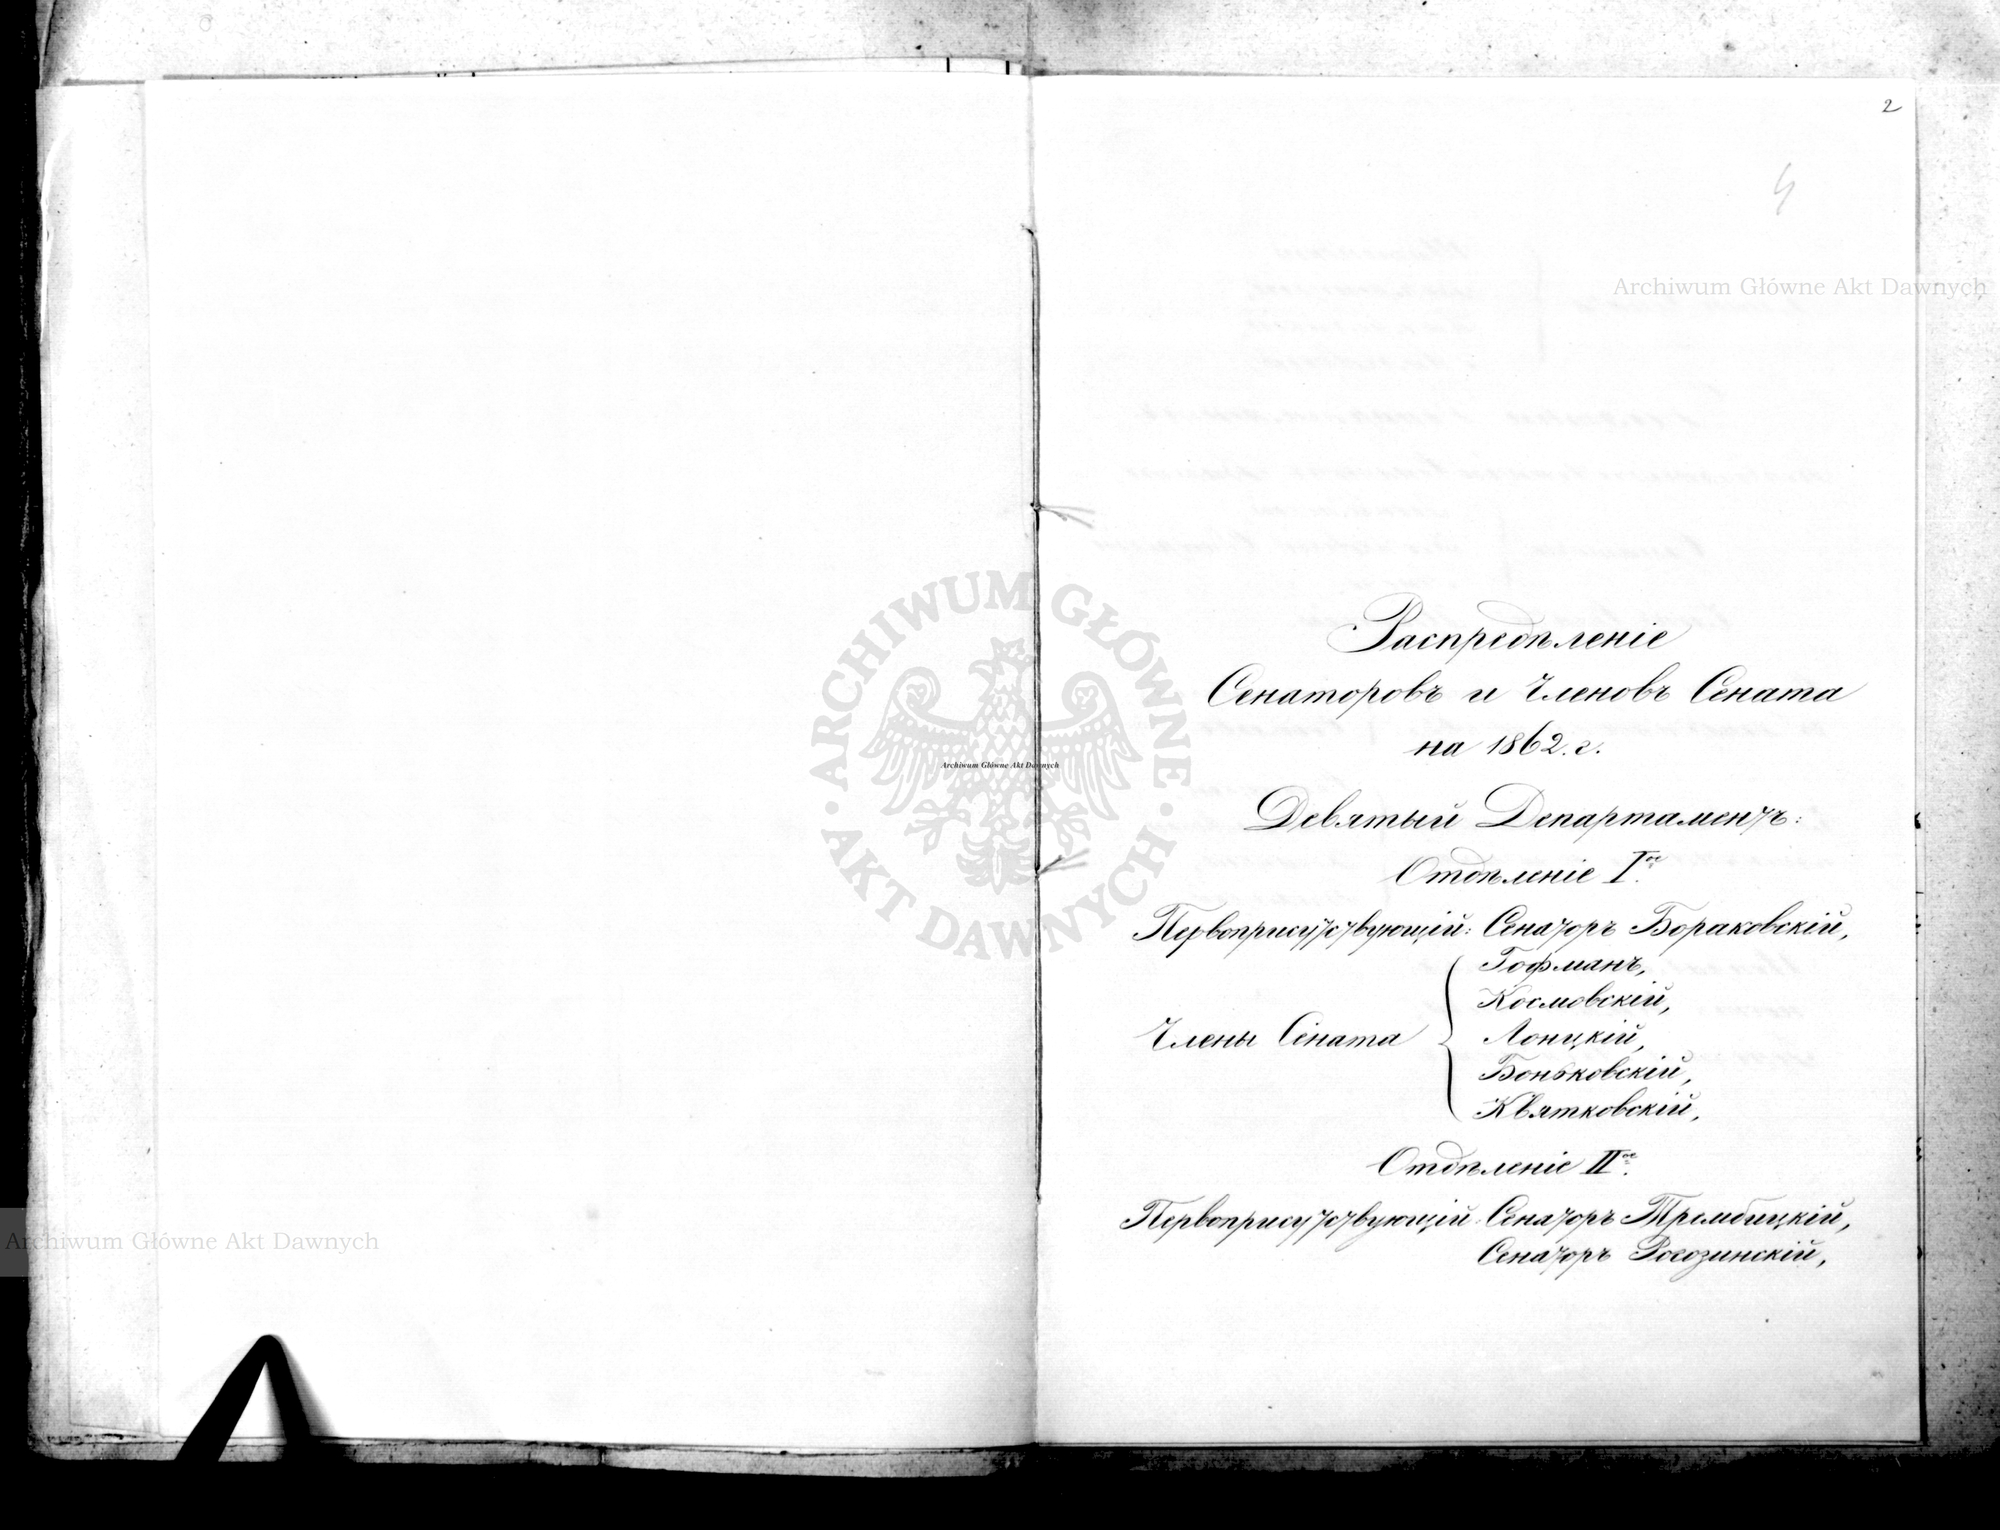 2
Archiwum Główne Akt Dawnych
Распредѣленіе
Сенаторовъ и Членовъ Сената
на 1862. г.
ARCHIWUM GŁÓWNE AKT DAWNYCH
Archiwum Główne Akt Dawnych
Девятый Департаментъ:
Отдѣленіе I.ое
Первоприсутствующій: Сенаторъ Бораковскій,
Гофманъ,
Космовскій,
Члены Сената Лонцкій,
Боньковскій,
Квятковскій,
Отдѣленіе II.ое
Первоприсутствующій: Сенаторъ Трембицкій,
Archiwum Główne Akt Dawnych
Сенаторъ Рогозинскій,